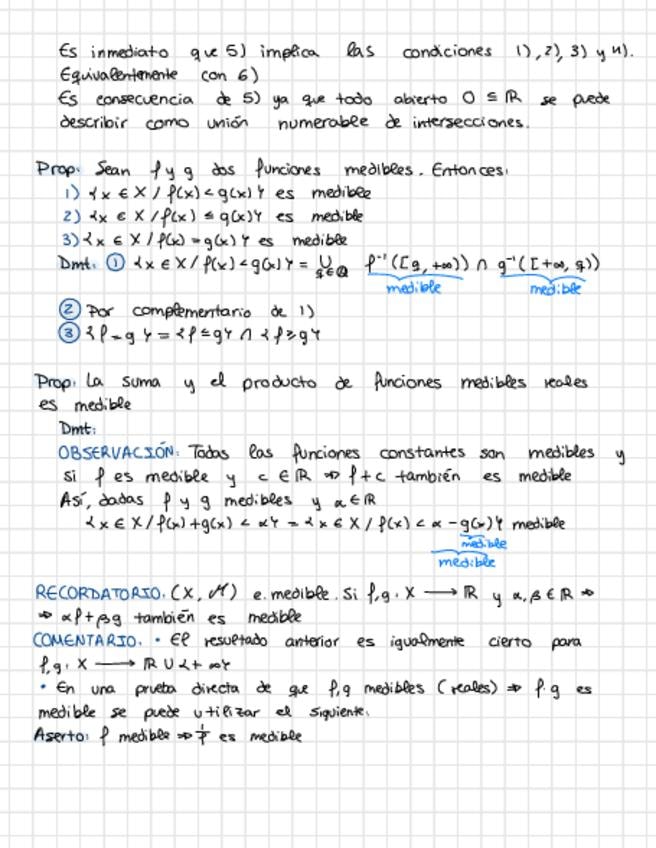 Es inmediato que 5) implica las condiciones 1), 2), 3) y 4).
Equivalentemente con 6)
Es consecuencia de 5) ya que todo abierto O ⊆ ℝ se puede
describir como unión numerable de intersecciones.
Prop: Sean f y g dos funciones medibles. Entonces:
1) {x ∈ X / f(x) < g(x)} es medible
2) {x ∈ X / f(x) ≤ g(x)} es medible
3) {x ∈ X / f(x) = g(x)} es medible
Dmt: ① {x ∈ X / f(x) < g(x)} = ∪_{q ∈ ℚ} f⁻¹([q, +∞)) ∩ g⁻¹([+∞, q))
medible medible
② Por complementario de 1)
③ {f = g} = {f ≤ g} ∩ {f ≥ g}
Prop: La suma y el producto de funciones medibles reales
es medible
Dmt:
OBSERVACIÓN: Todas las funciones constantes son medibles y
si f es medible y c ∈ ℝ ⇒ f + c también es medible
Así, dadas f y g medibles y α ∈ ℝ
{x ∈ X / f(x) + g(x) < α} = {x ∈ X / f(x) < α - g(x)} medible
medible
medible
RECORDATORIO. (X, M) e. medible. Si f, g: X → ℝ y α, β ∈ ℝ ⇒
⇒ αf + βg también es medible
COMENTARIO. • El resultado anterior es igualmente cierto para
f, g: X → ℝ ∪ {+∞}
• En una prueba directa de que f, g medibles (reales) ⇒ f·g es
medible se puede utilizar el siguiente:
Aserto: f medible ⇒ 1/f es medible